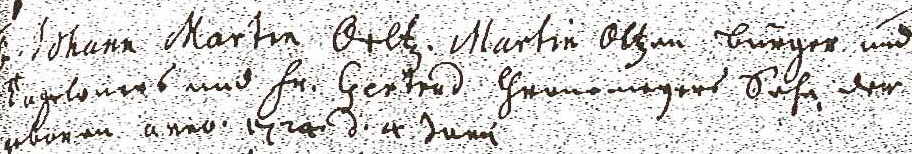 Johann Martin Oeltz. Martin Oltzen bürger und
Tagelöners und fr. Gertrud Sohn der
gboren anno. 1724 d. 4 Juny